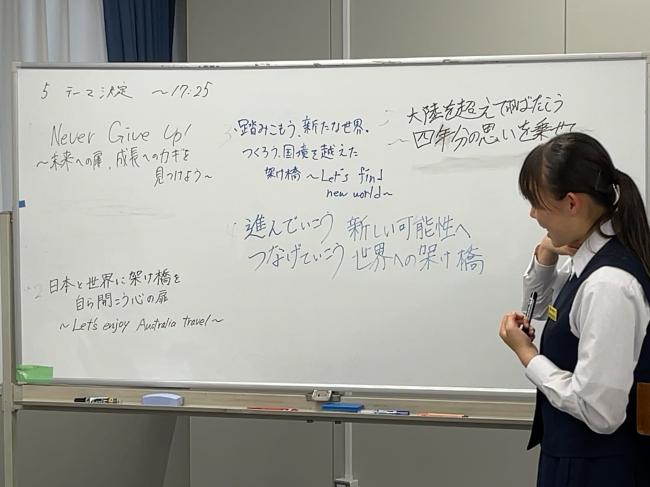 5 テーマ決定 〜17:25
Never Give Up!
〜未来への扉、成長へのカギを
見つけよう〜
2 日本と世界に架け橋を
自ら開こう心の扉
〜Let's enjoy Australia travel〜
3 踏みこもう、新たな世界。
つくろう、国境を越えた
架け橋 〜Let's find
new world〜
4 進んでいこう 新しい可能性へ
つなげていこう 世界への架け橋
大陸を超えて羽ばたこう
〜四年分の思いを乗せて